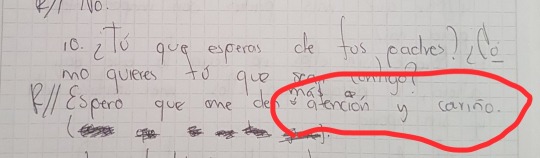 R// No.
10. ¿Tú que esperas de tus padres? ¿Co
mo quieres tú que sean contigo?
más
R// Espero que me den atención y cariño.